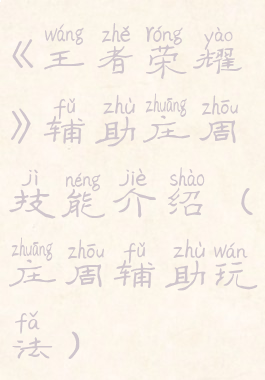 wáng zhě róng yào
《王者荣耀
fǔ zhù zhuāng zhōu
》辅助庄周
jì néng jiè shào
技能介绍（
zhuāng zhōu fǔ zhù wán
庄周辅助玩
fǎ
法）